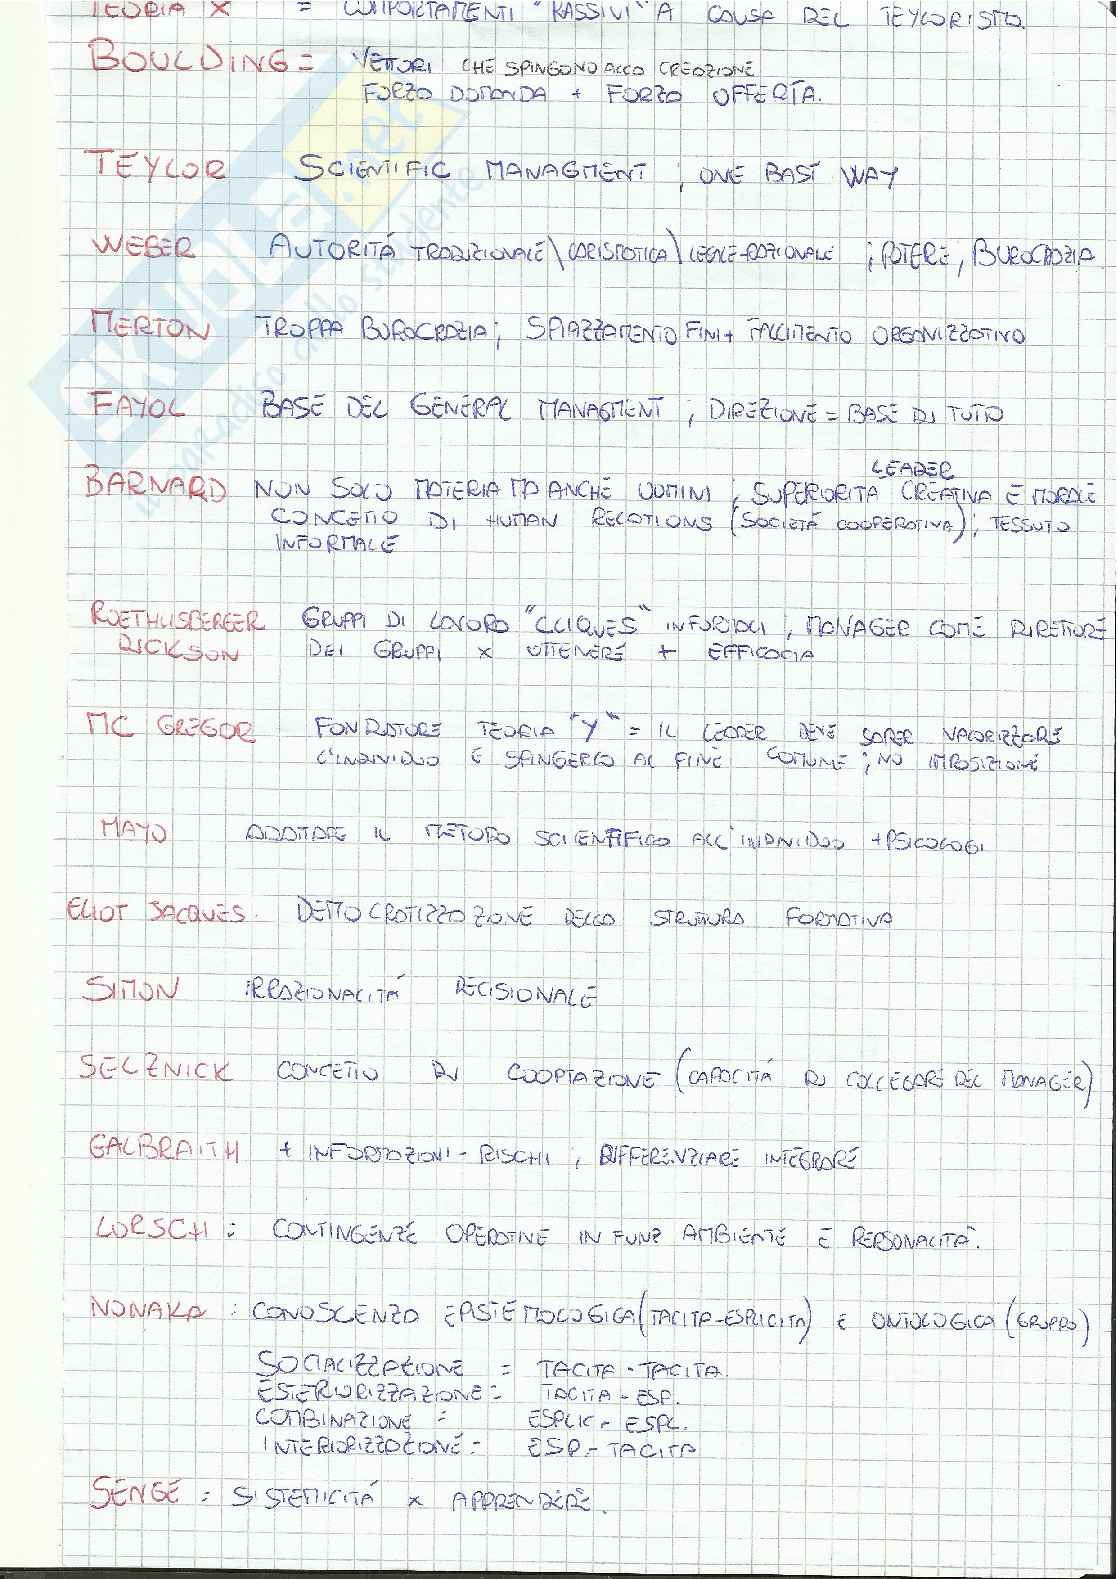 TEORIA X = COMPORTAMENTI "PASSIVI" A CAUSA DEL TEYLORISMO.
BOULDING = VETTORI CHE SPINGONO ALLA CREAZIONE
FORZA DOMANDA + FORZA OFFERTA.
TEYLOR SCIENTIFIC MANAGMENT ; ONE BAST WAY
WEBER AUTORITÁ TRADIZIONALE \ CARISMATICA \ LEGALE-RAZIONALE ; POTERE, BUROCRAZIA
MERTON TROPPA BUROCRAZIA ; SPIAZZAMENTO FINI + FALLIMENTO ORGANIZZATIVO
FAYOL BASE DEL GENERAL MANAGMENT ; DIREZIONE = BASE DI TUTTO
LEADER
BARNARD NON SOLO MATERIA MA ANCHE UOMINI ; SUPERIORITÀ CREATIVA E MORALE
CONCETTO DI HUMAN RELATIONS (SOCIETÁ COOPERATIVA) ; TESSUTO
INFORMALE
ROETHLISBERGER GRUPPI DI LAVORO "CLIQUES" INFORMALI ; MANAGER COME DIRETTORE
DICKSON DEI GRUPPI X OTTENERE + EFFICACIA
MC GREGOR FONDATORE TEORIA "Y" = IL LEADER DEVE SAPER VALORIZZARE
L'INDIVIDUO E SPINGERLO AL FINE COMUNE ; NO IMPOSIZIONE
MAYO ADOTTARE IL METODO SCIENTIFICO ALL'INDIVIDUO + PSICOLOGI
ELIOT JACQUES. DEMOCRATIZZAZIONE DELLA STRUTTURA FORMATIVA
SIMON IRRAZIONALITÁ DECISIONALE
SELZNICK CONCETTO DI COOPTAZIONE (CAPACITÁ DI COLLEGARE DEL MANAGER)
GALBRAITH + INFORMAZIONI - RISCHI ; DIFFERENZIARE INTEGRARE
LORSCH : CONTINGENZE OPERATIVE IN FUNZ AMBIENTE E PERSONALITÀ.
NONAKA : CONOSCENZA EPISTEMOLOGICA (TACITA-ESPLICITA) E ONTOLOGICA (GRUPPO)
SOCIALIZZAZIONE = TACITA - TACITA.
ESTERIORIZZAZIONE = TACITA - ESP.
COMBINAZIONE = ESPLIC - ESPL.
INTERIORIZZAZIONE = ESP. - TACITA
SENGE : SISTEMICITÁ X APPRENDERE.
SKUOLA.net
il paradiso dello studente